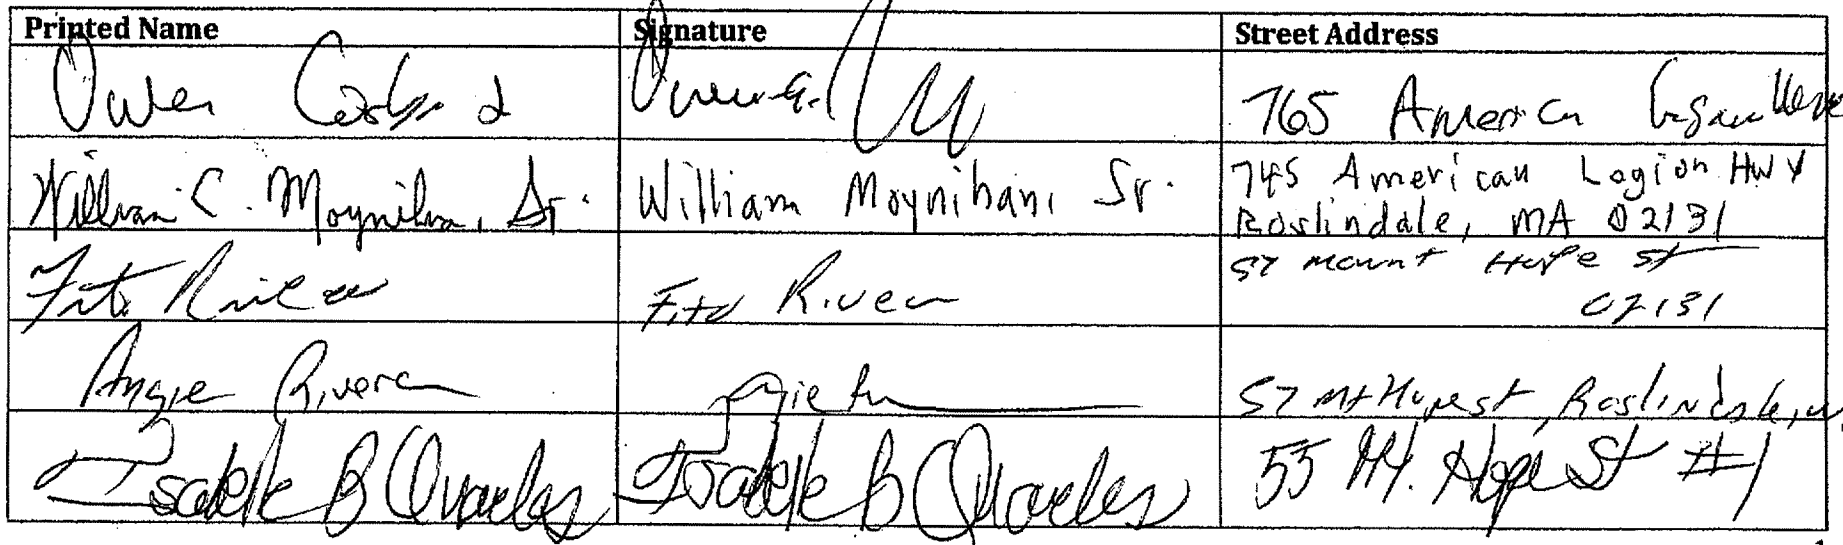 Printed Name Signature Street Address
Owen 765 America
William C. Moynihan, Sr. William Moynihan, Sr. 745 American Legion Hwy
Roslindale, MA 02131
Rivera Rivera 57 Mount Hope St
02131
Angie Rivera 57 Mt Hope St, Roslindale,
Isabelle B Quarles Isabelle B Quarles 55 Mt. Hope St #1